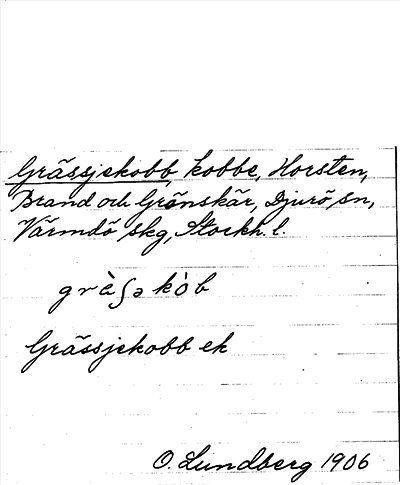 Grässjekobb, kobbe, Horsten,
Brand och Grönskär, Djurö sn,
Värmdö skg, Stockh. l.
grὲʃə kòb
Grässjekobb ek
O. Lundberg 1906